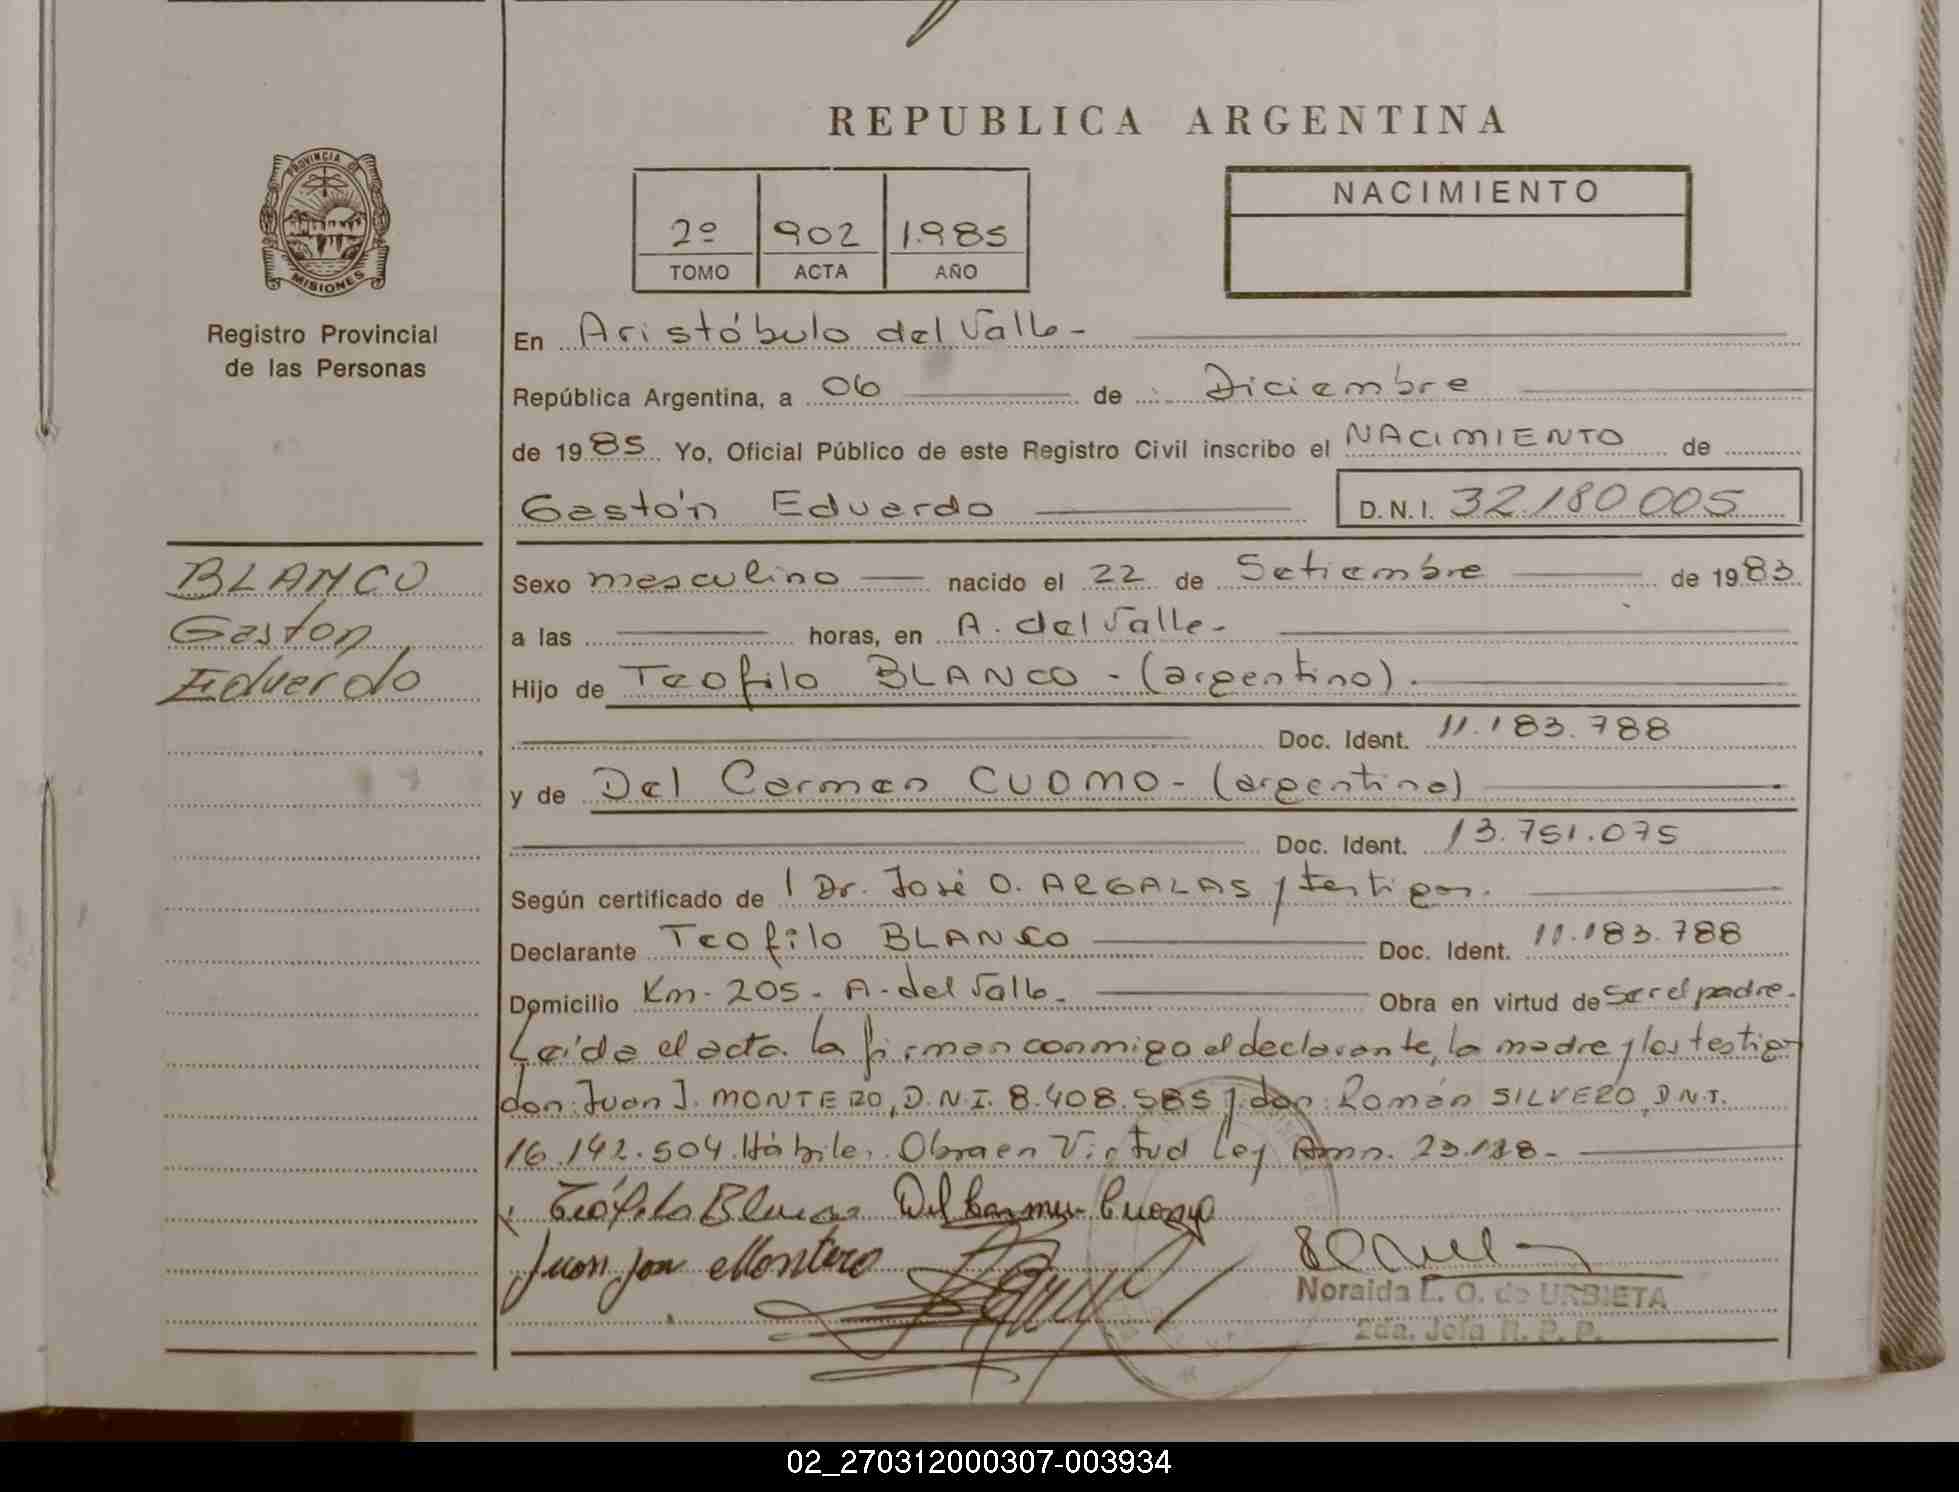 REPUBLICA ARGENTINA
PROVINCIA DE
MISIONES
Registro Provincial
de las Personas
2º 902 1.985
TOMO ACTA AÑO
NACIMIENTO
En Aristóbulo del Valle -
República Argentina, a 06 de Diciembre
de 1985 Yo, Oficial Público de este Registro Civil inscribo el NACIMIENTO de
Gastón Eduardo D.N.I. 32.180.005
BLANCO
Gastón
Eduardo
Sexo masculino nacido el 22 de Setiembre de 1983
a las horas, en A. del Valle -
Hijo de Teofilo BLANCO - (argentino).
Doc. Ident. 11.183.788
y de Del Carmen CUOMO - (argentina)
Doc. Ident. 13.751.075
Según certificado de Dr. José O. ARGALAS y testigos.
Declarante Teofilo BLANCO Doc. Ident. 11.183.788
Domicilio Km. 205 - A. del Valle - Obra en virtud de ser el padre.
Leída el acta la firman conmigo el declarante, la madre y los testigos
don: Juan J. MONTERO, D.N.I. 8.408.585 y don: Román SILVERO, D.N.I.
16.142.504. Hábiles. Obra en Virtud Ley Amn. 23.128 -
Teófilo Blanco Del Carmen Cuomo
Juan José Montero
Noraida L. O. de URBIETA
2da. Jefa R. P. P.
02_270312000307-003934